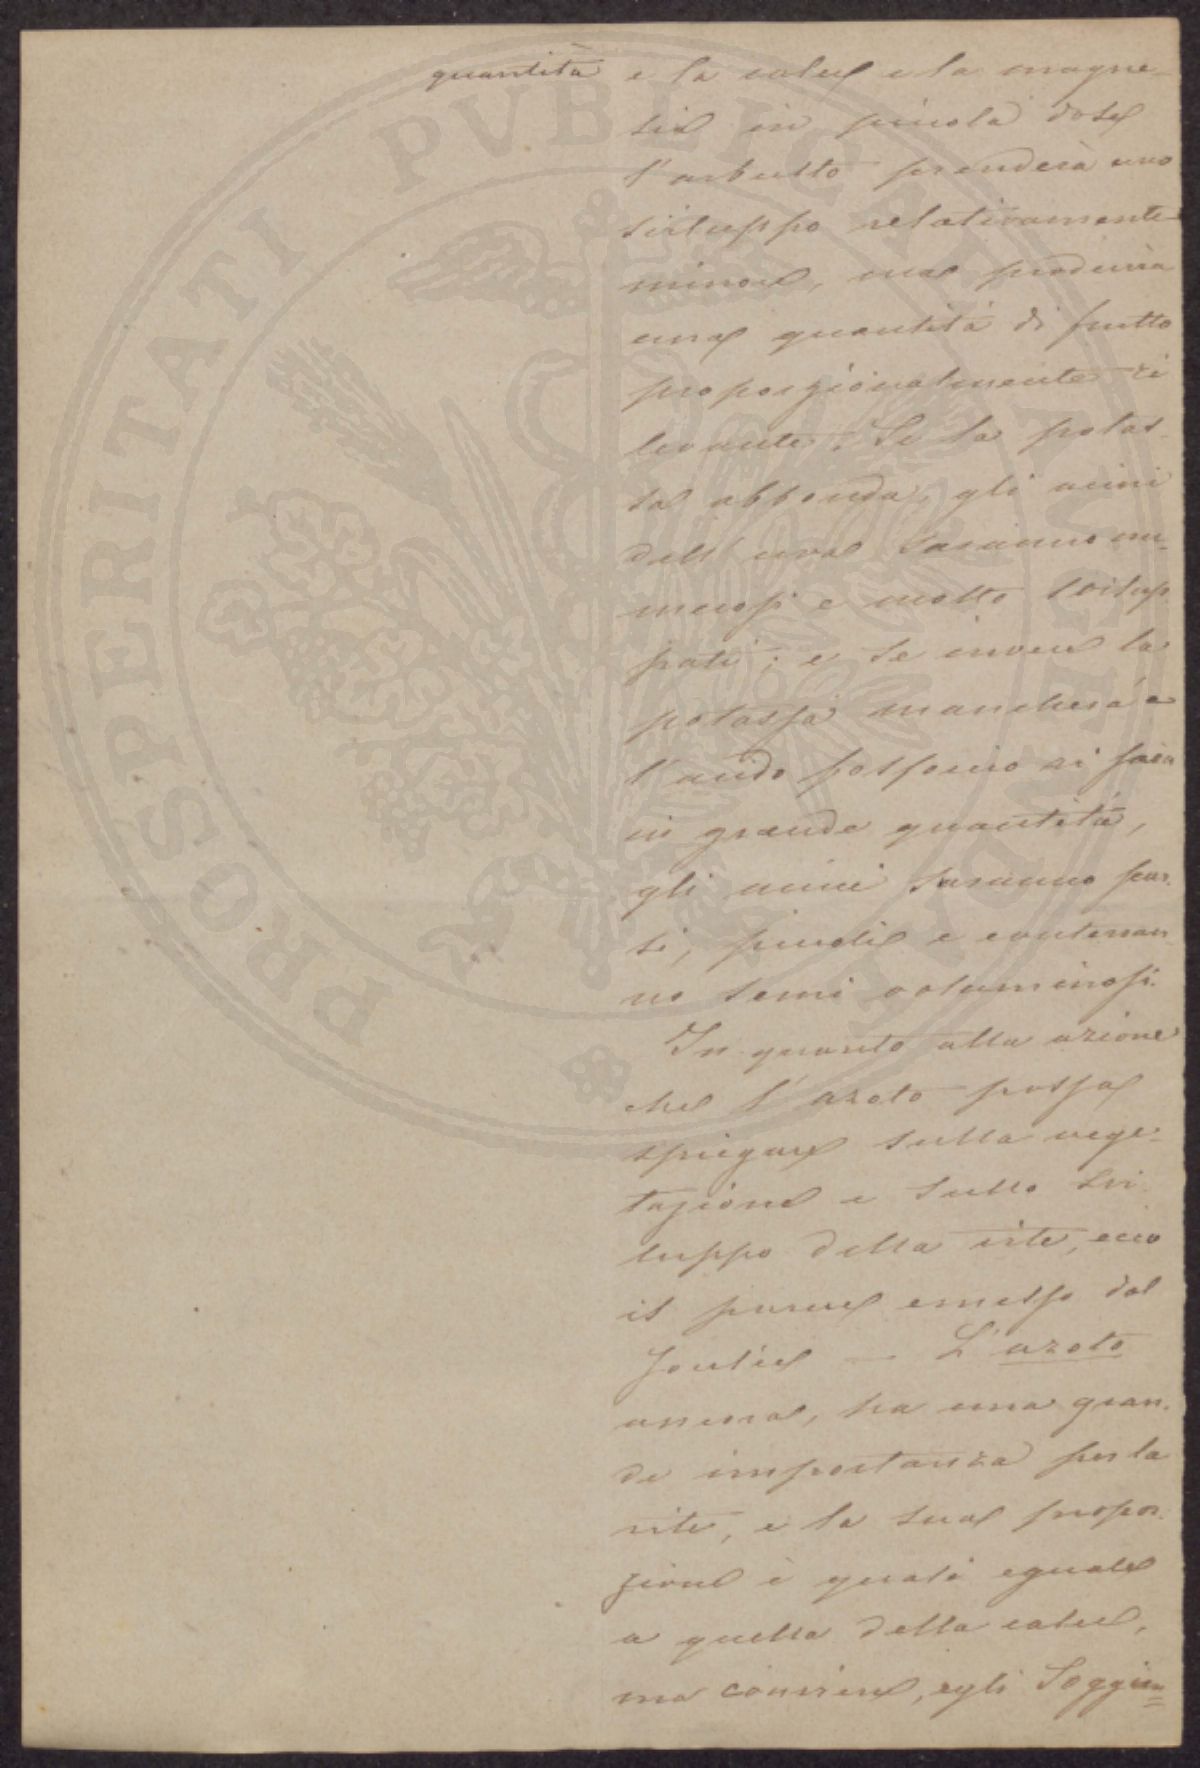 quantità e la calce e la magne-
sia in piccola dose
l'arbusto prenderà uno
sviluppo relativamente
minore, ma produrrà
una quantità di frutto
proporzionalmente ri
levante. Se la potas-
sa abbonda, gli acini
dell'uva saranno nu-
merosi e molto svilup-
pati; e se invece la
potassa mancherà e
l'acido fosforico vi sarà
in grande quantità,
gli acini saranno scar-
si, piccoli e conterran-
no semi voluminosi.
In quanto alla azione
che l'azoto possa
spiegare sulla vege-
tazione e sullo svi
luppo della vite, ecco
il parere emesso dal
Joulie — L'azoto
ancora, ha una gran-
de importanza per la
vite, e la sua propor-
zione è quasi eguale
a quella della calce,
ma conviene, egli soggiun=
PROSPERITATI PVBLICAE AVGENDAE